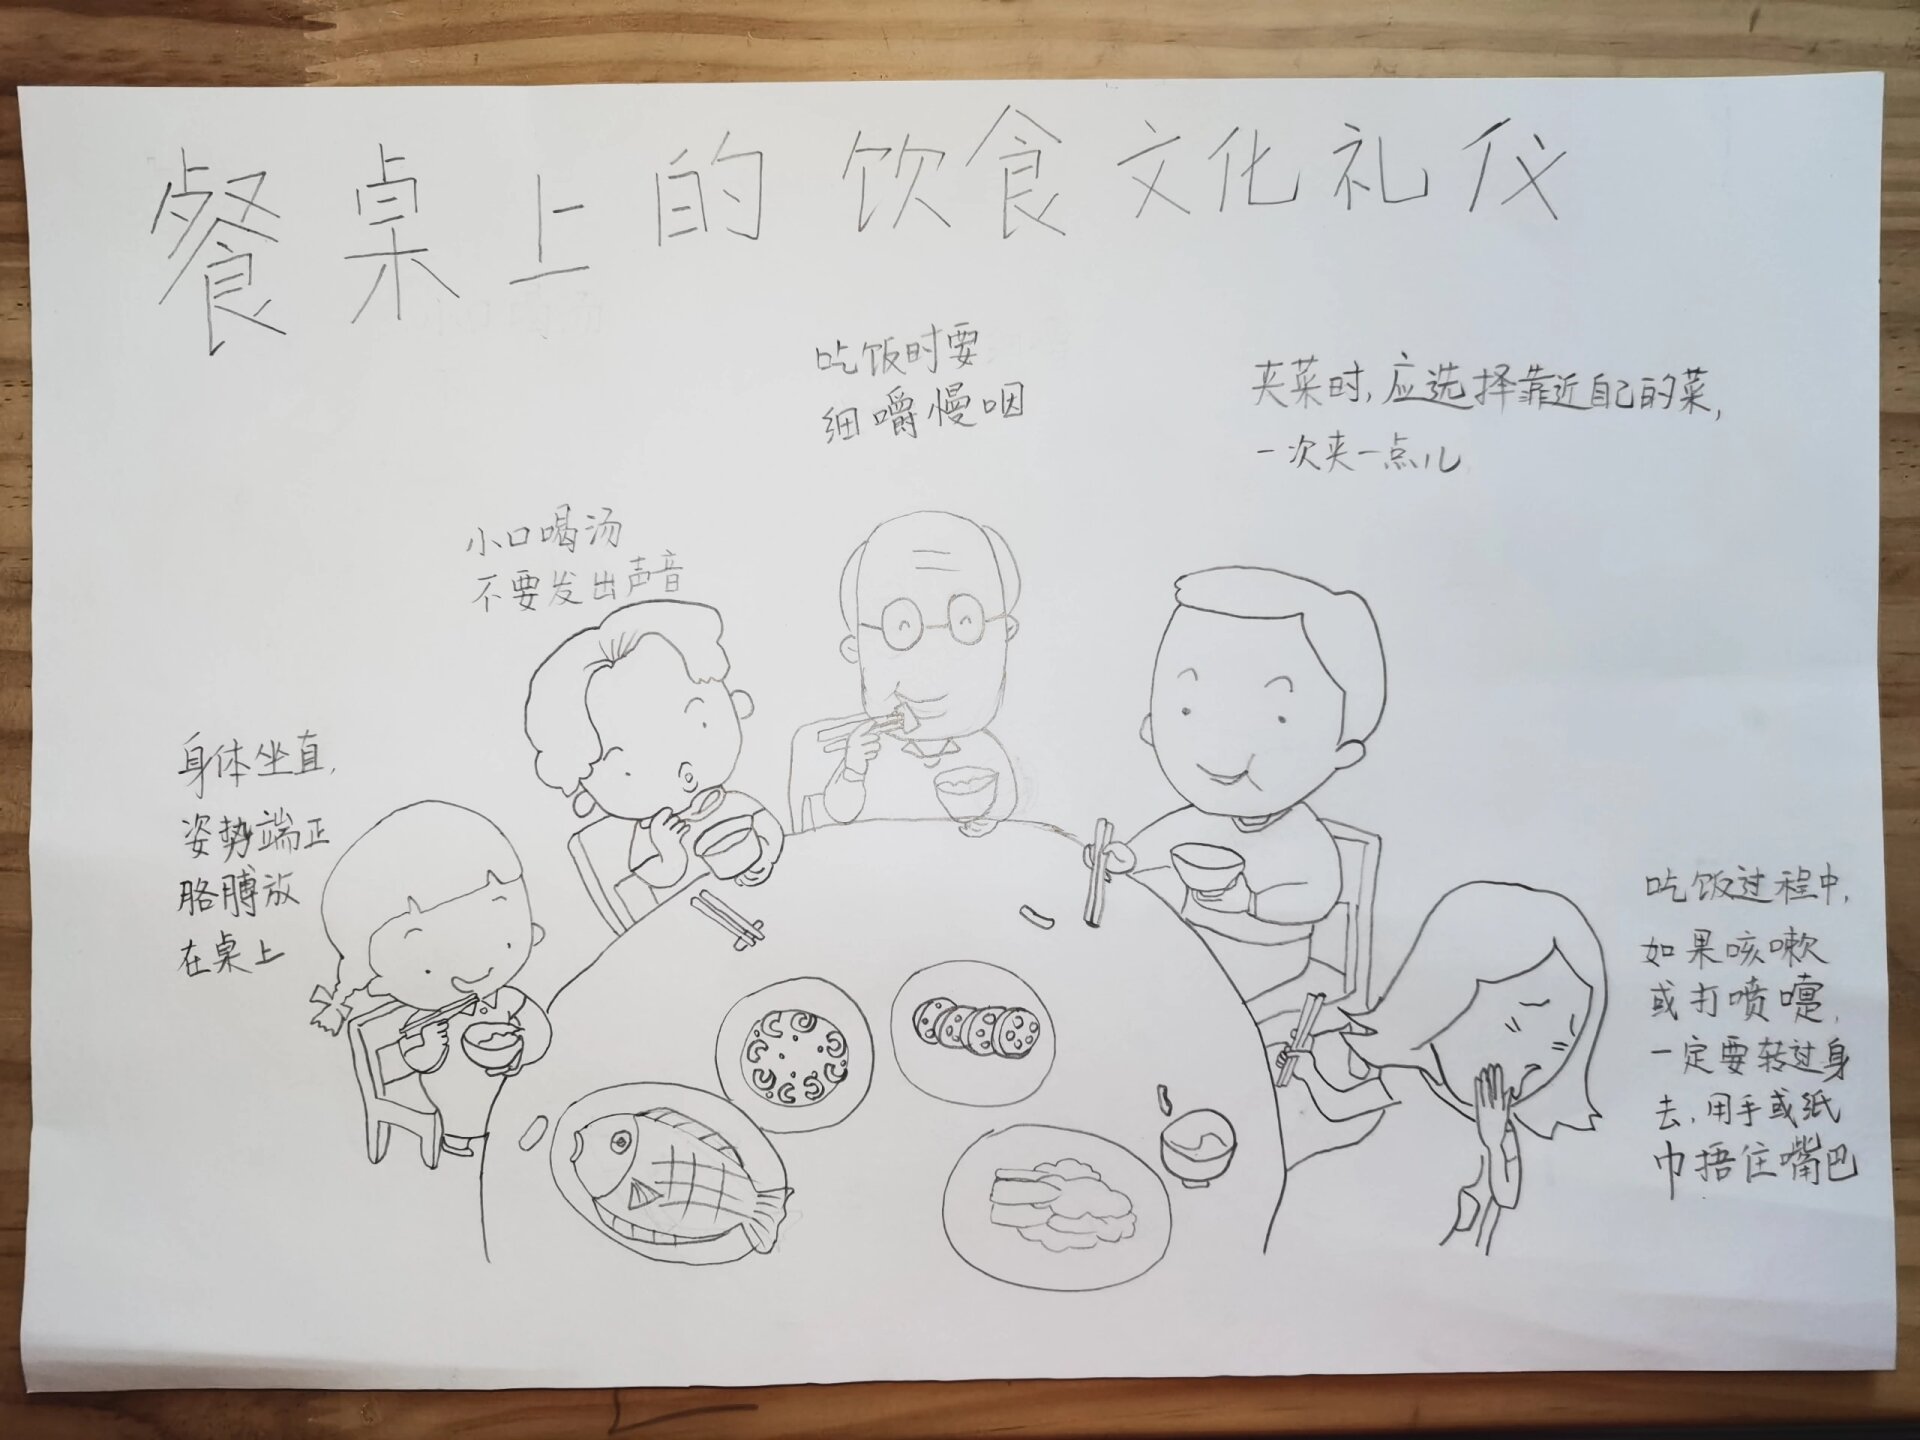 餐桌上的饮食文化礼仪
吃饭时要
细嚼慢咽
夹菜时,应选择靠近自己的菜,
一次夹一点儿
小口喝汤
不要发出声音
身体坐直,
姿势端正
胳膊放
在桌上
吃饭过程中,
如果咳嗽
或打喷嚏,
一定要转过身
去,用手或纸
巾捂住嘴巴